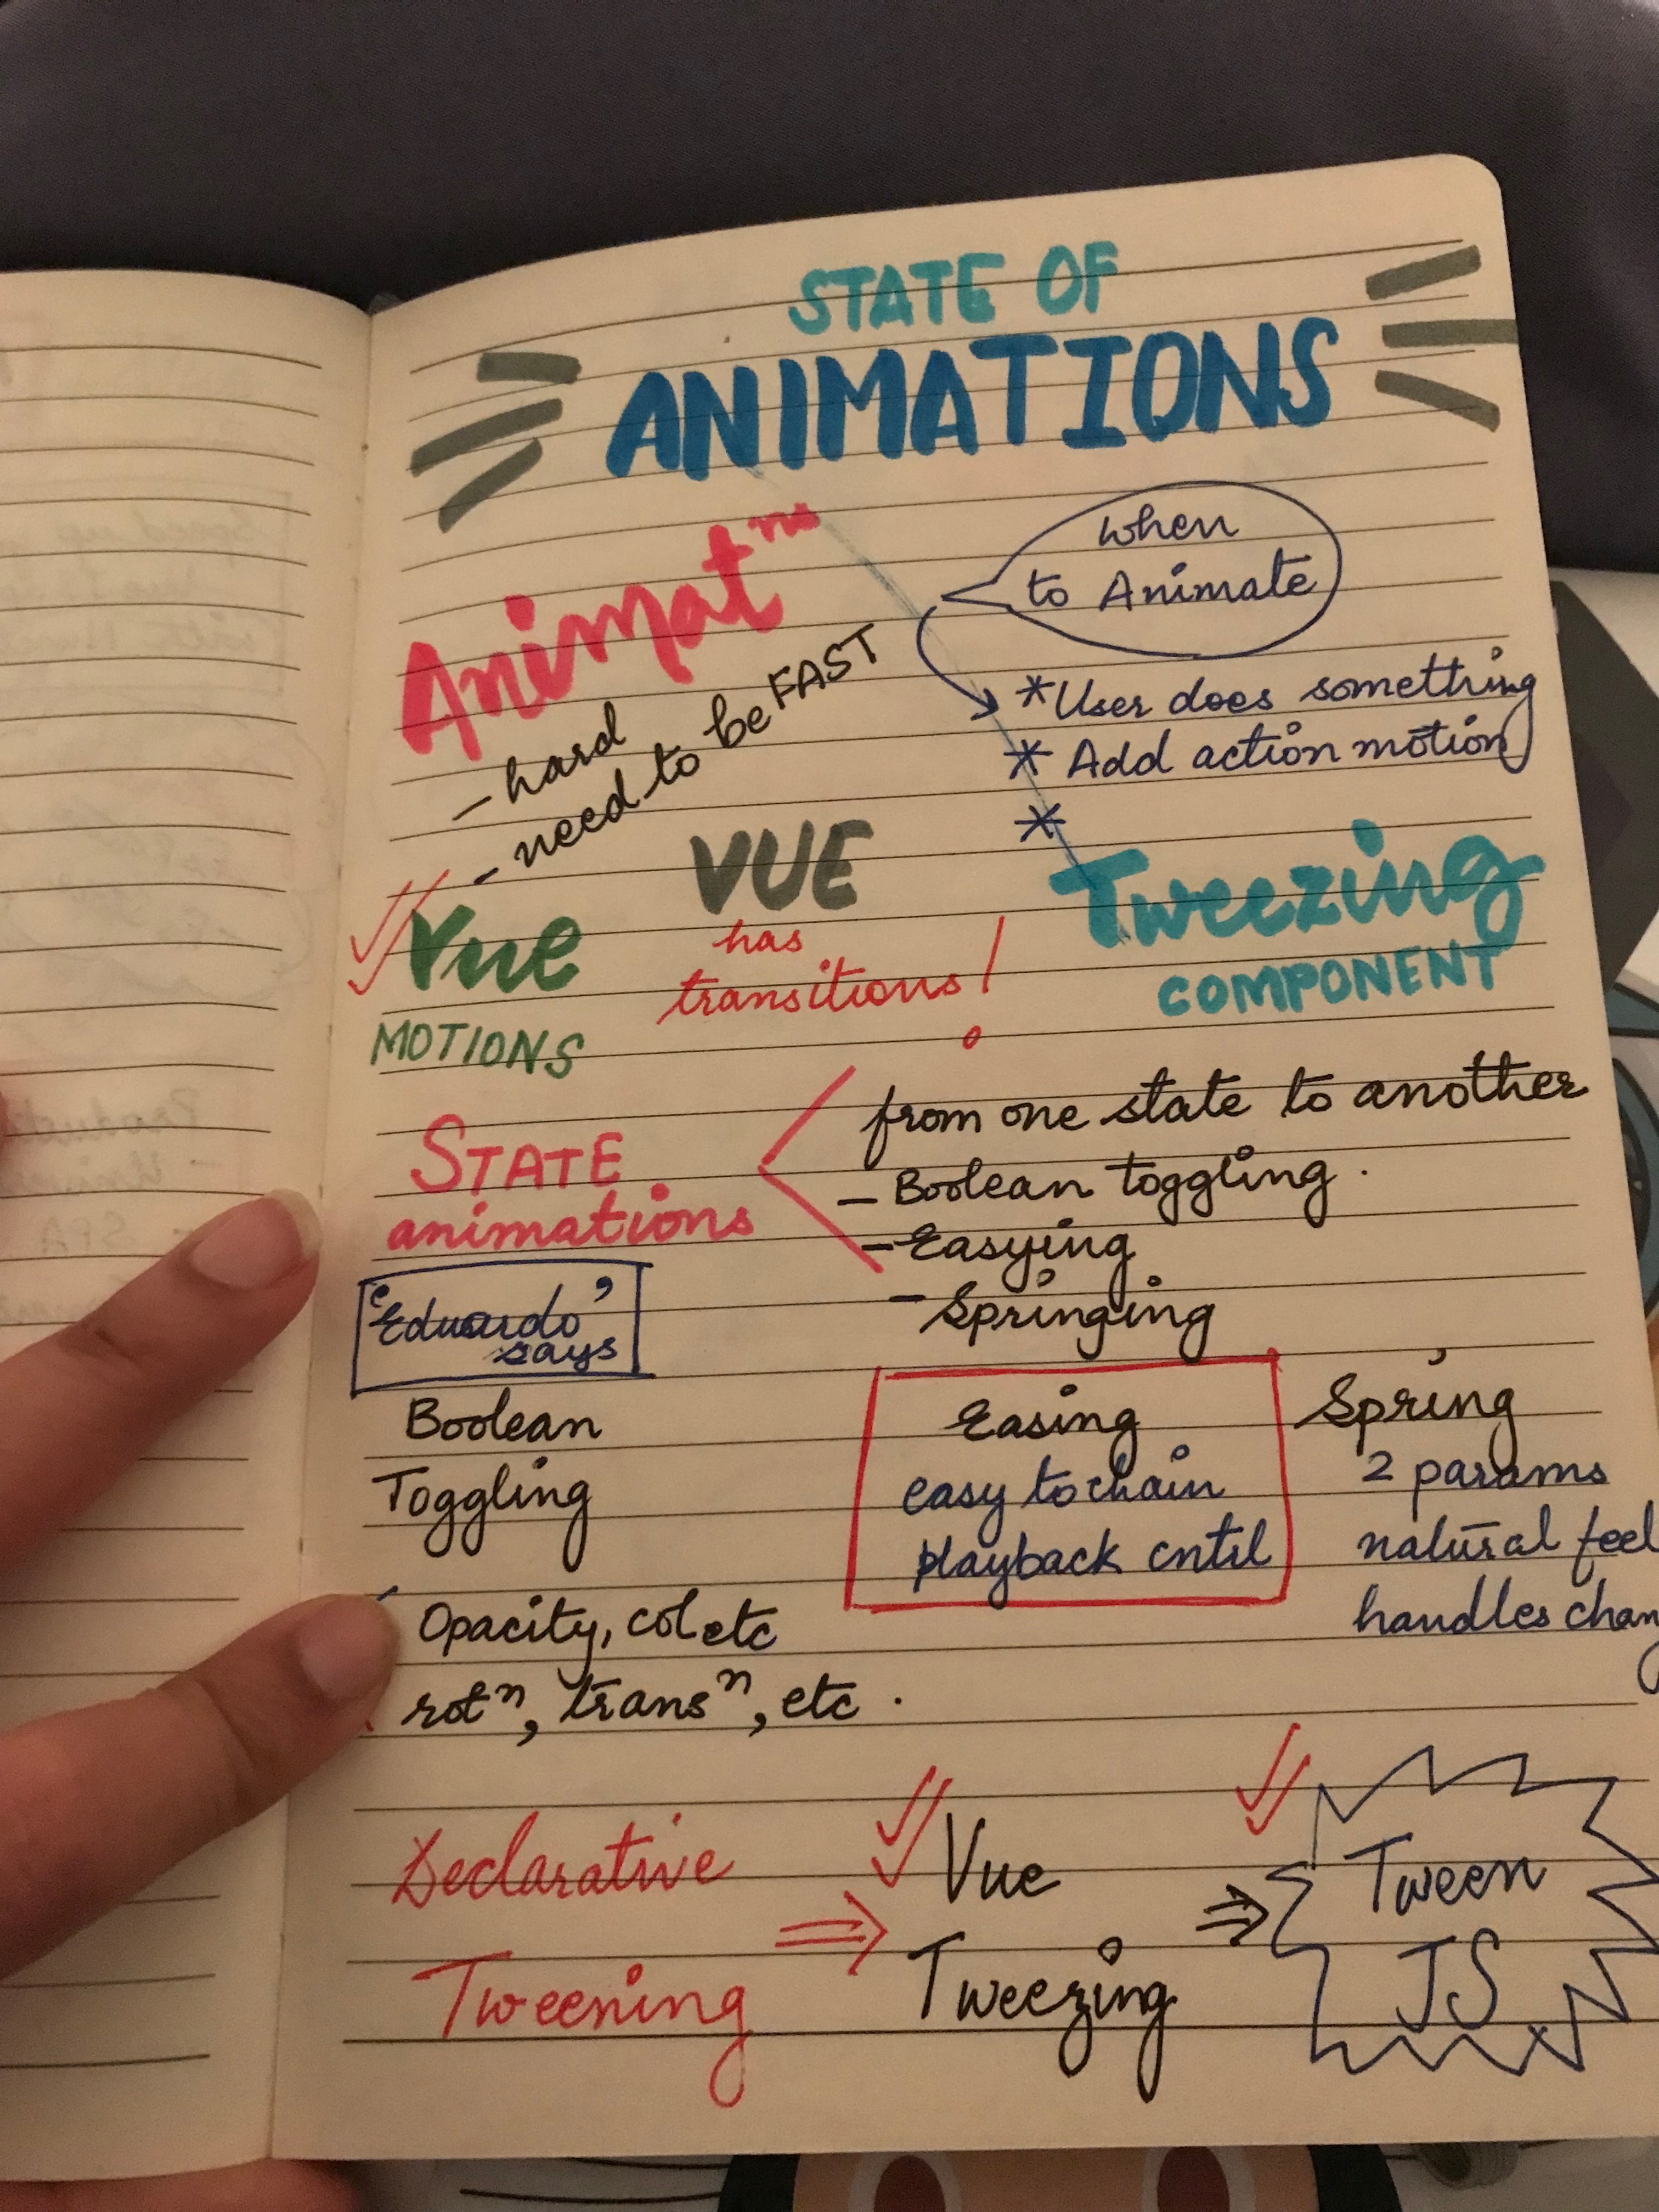 STATE OF
ANIMATIONS
Animat^ns
- hard
- need to be FAST
when
to Animate
* User does something
* Add action motion
*
Vue
MOTIONS
VUE
has
transitions!
Tweezing
COMPONENT
STATE
animations
from one state to another
- Boolean toggling.
- Easying
- Springing
'Eduardo'
says
Boolean
Toggling
Opacity, col etc
rot^n, trans^n, etc.
Easing
easy to chain
playback cntrl
Spring
2 params
natural feel
handles chan
Declarative
Tweening
⇒
Vue
Tweezing
⇒
Tween
JS